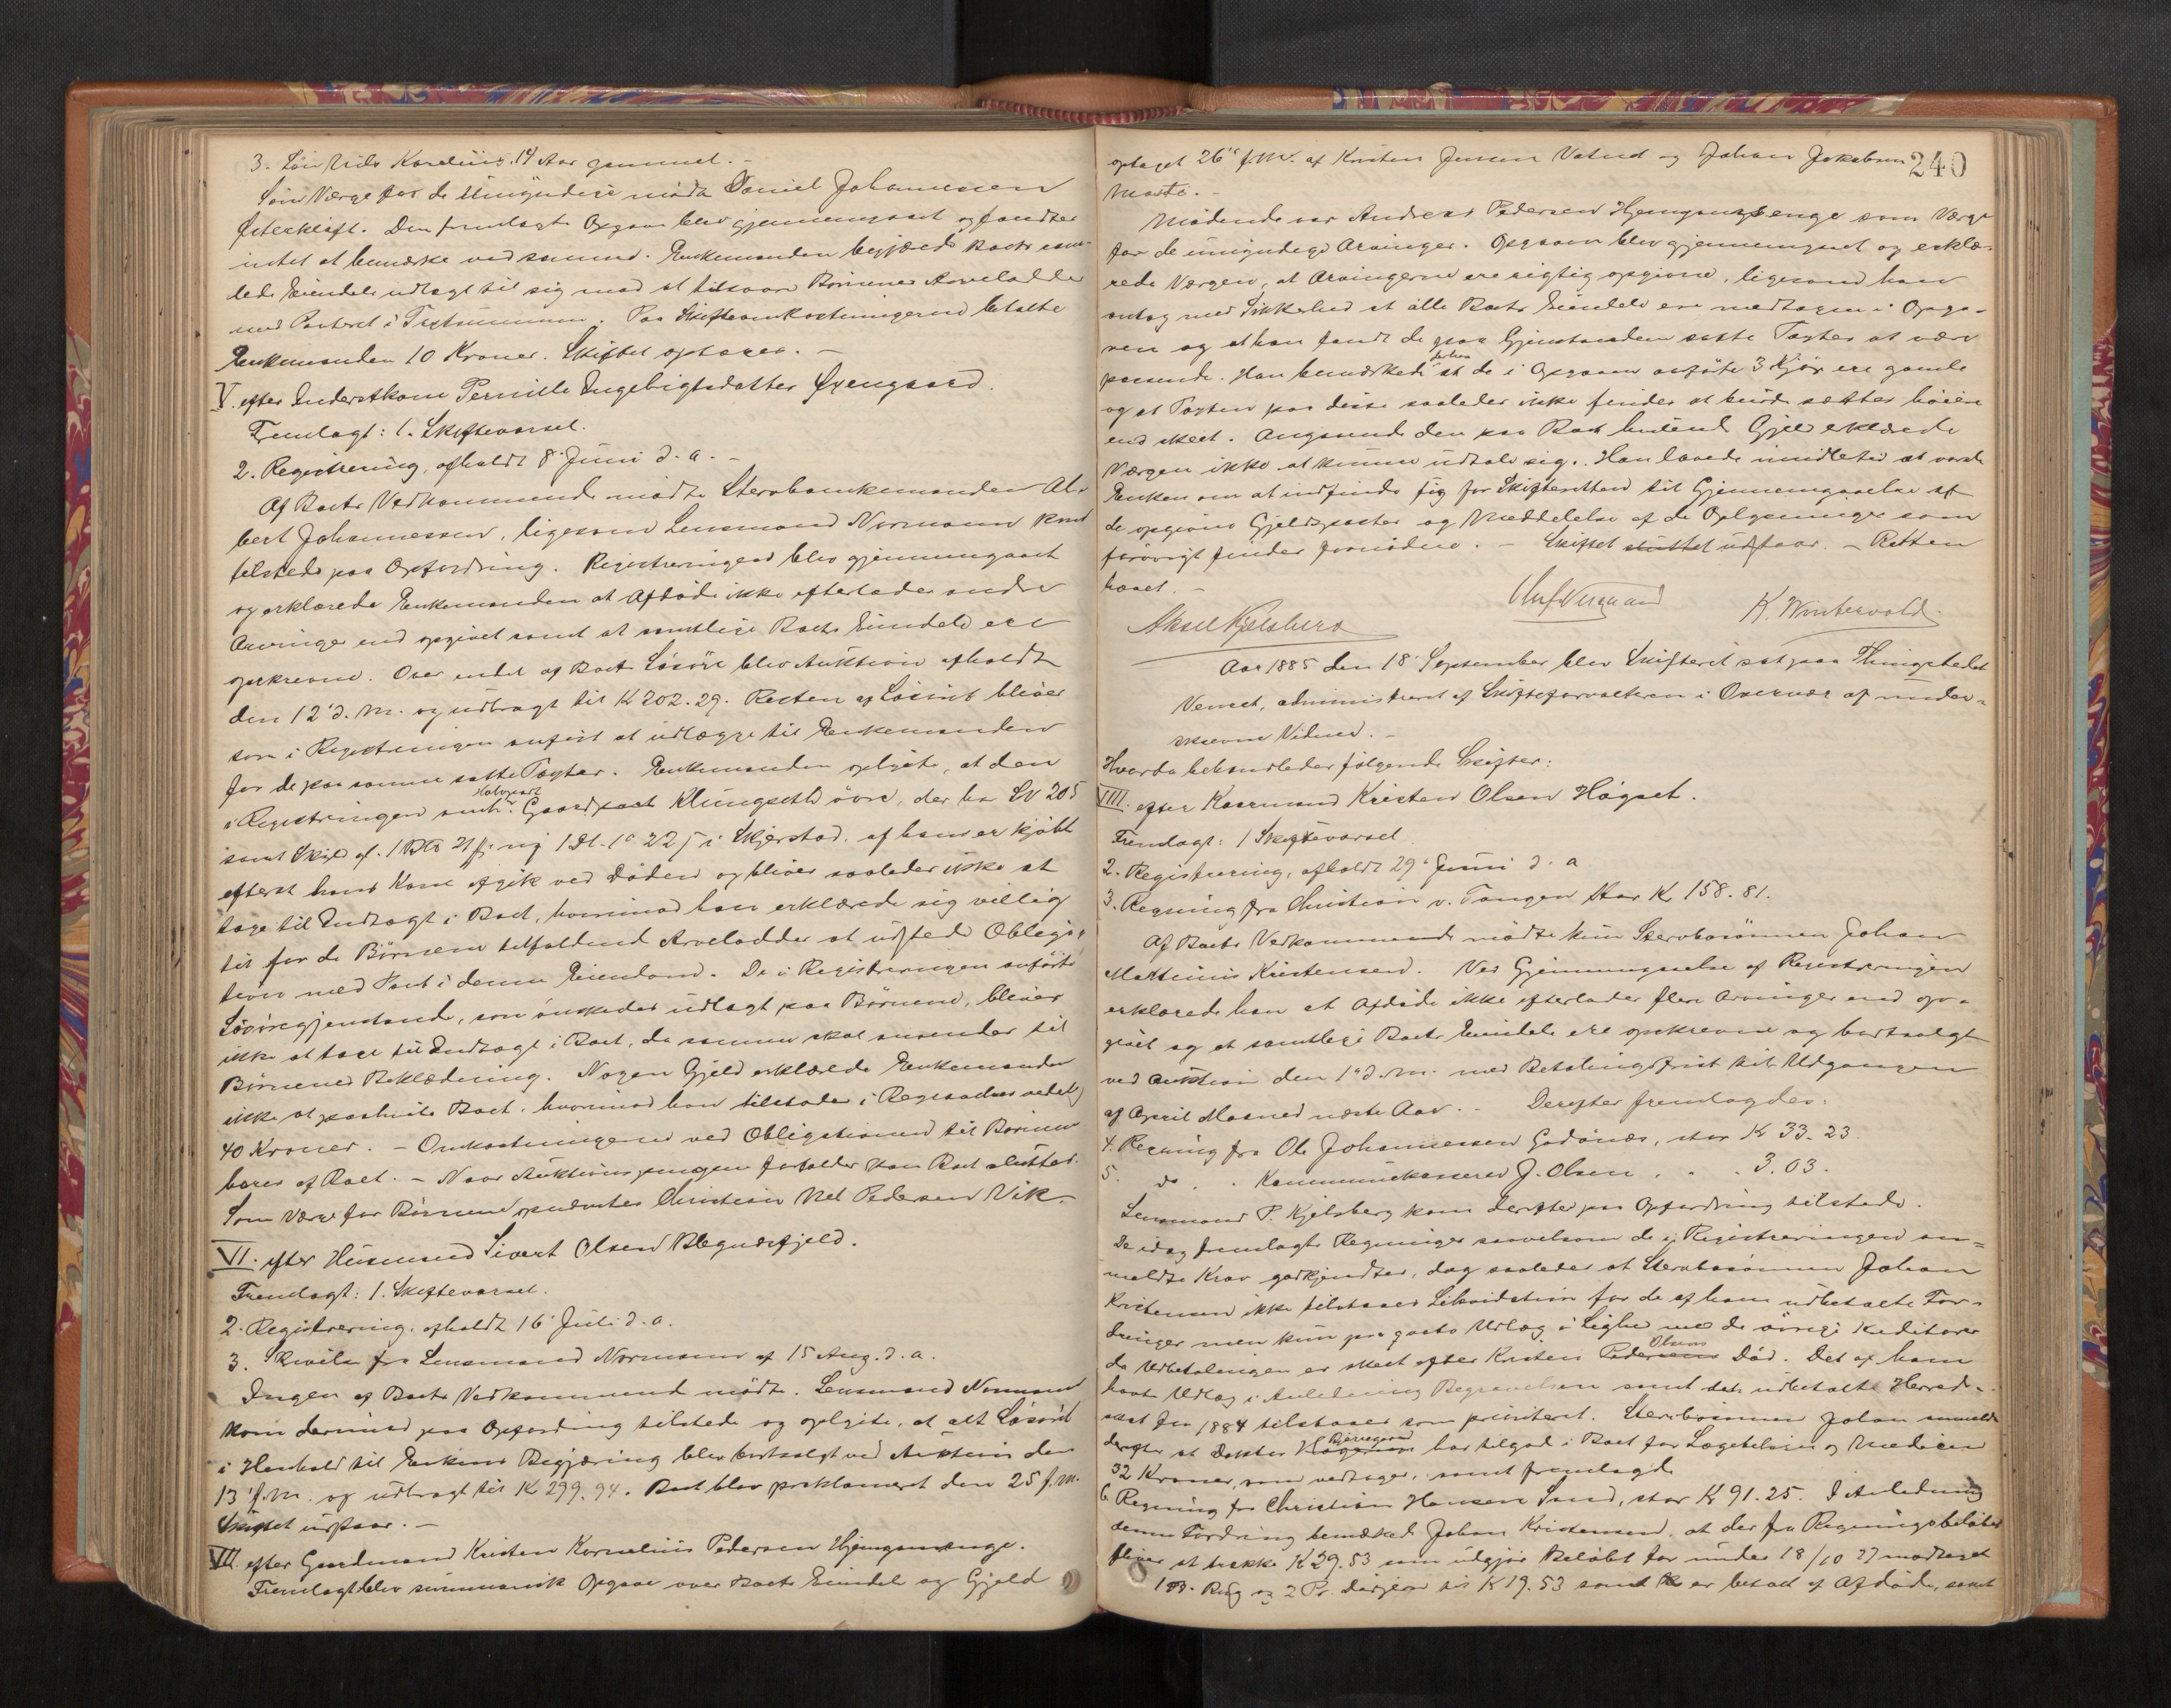 3. Søn Nils Kornelius. 14 Aar gammel. –
Som Værge for de Umyndige mødte Daniel Johannesen
Østerkløft. Den fremlagte Opgave blev gjennemgaaet og fandtes
intet at bemærke ved samme. Enkemanden begjærede Boets sam-
lede Eiendele udlagt til sig mod at tilsvare Børnenes Arvelodder
med Panteret i . Paa Skifteomkostningerne betalte
Enkemanden 10 Kroner. Skiftet optages. –
V. efter Inderstkone Pernille Ingebrigtsdatter Øxengaard.
Fremlagt: 1. Skiftevarsel.
2. Registrering, afholdt 8' Juni d. a. –
Af Boets Vedkommende mødte Stervboenkemanden Al-
bert Johannessen, ligesom Lensmand Normann kom
tilstede paa Opfordring. Registreringen blev gjennemgaaet
og erklærede Enkemanden at Afdøde ikke efterlader andre
Arvinger end opgivet samt at samtlige Boets Eiendele ere
opskrevne. Over endel af Boets Løsøre blev Auktion afholdt
den 12' d. M. og udbragt til K 202. 29. Resten af Løsøret bliver
som i Registreringen anført at udlægge til Enkemanden
for de paa samme satte Taxter. Enkemanden oplyste, at den
i Registreringen Halvpart Gaardpart Klungseth øvre, der har LN 205
samt Skyld af 1 ny 1 Dl. 1 o 22 i Skjerstad, af ham er kjøbt
efterat hans Kone afgik ved Døden og bliver saaledes ikke at
tage til Indtægt i Boet, hvorimod han erklærede sig villig
til for de Børnene tilfaldende Arvelodder at udstede Obliga-
tion med Pant i denne Eiendom. De i Registreringen anførte
Løsøregjenstande, som ønskedes udlagt paa Børnene, bliver
ikke at tage til Indtægt i Boet, da samme skal anvendes til
Børnenes Beklædning. Nogen Gjeld erklærede Enkemanden
ikke at paahvile Boet, hvorimod han tilstodes i
40 Kroner. – Omkostningerne ved Obligationen til Børnene
bæres af Boet. – Naar Auktionspengene forfalder kan Boet sluttes.
Som Værge for Børnene opnævntes Christian Nel Pedersen Vik –
VI. efter Husmand Sivert Olsen Blegnæsfjeld.
Fremlagt: 1. Skiftevarsel.
2. Registrering, afholdt 16' Juli d. a.
3. Skrivelse fra Lensmand Normann af 15 Aug. d. a.
Ingen af Boets Vedkommende mødte. Lensmand Normann
kom derimod paa Opfordring tilstede og oplyste, at alt Løsøret
i Henhold til Enkens Begjæring blev bortsolgt ved Auktion den
13' f. M. og udbragt til K 299. 94. Boet blev proklameret den 25 f. M.
Skiftet udstaar. –
VII. efter Gaardmand Kristen Kornelius Pedersen Hjemgamenge.
Fremlagt blev summarisk Opgave over Boets Eiendele og Gjeld
240
optaget 26' f. M. af Kristen Jensen Vatnet og Johan Jakobsen
.–
Mødende var Andreas Pedersen Hjemgamsenge som Værge
for de umyndige Arvinger. Opgaven blev gjennemgaaet og erklæ-
rede Værgen, at Arvingerne ere rigtig opgivne, ligesom han
antog med Sikkerhed at alle Boets Eiendele ere medtagne i Opga-
ven og at han fandt de paa Gjenstandene satte Taxter at være
passende. Han bemærkede derhos at de i Opgaven anførte 3 Kjør ere gamle
og at Taxten paa disse saaledes ikke findes at burde sættes høiere
end skeet. Angaaende den paa Boet hvilende Gjeld erklærede
Værgen ikke at kunne udtale sig. Han lovede imidlertid at varsle
Enken om at indfinde sig for Skifteretten til Gjennemgaaelse af
de opgivne Gjeldsposter og Meddelelse af de Oplysninger som
forøvrigt findes fornødne. – Skiftet sluttet udstaar. – Retten
hævet. –
Aksel Kjelsberg Oluf Nergaard K. Wintervold.
Aar 1885 den 18' September blev Skifteret sat paa Thingstedet
Venset, administreret af Skifteforvalteren i Overvær af under-
skrevne Vidner. –
Hvorda behandledes følgende Skifter:
VIII. efter Kaarmand Kristen Olsen Høgset.
Fremlagt: 1 Skiftevarsel
2. Registrering, afholdt 29' Juni d. a.
3. Regning fra Christian v. Tangen stor K 158. 81.
Af Boets Vedkommende mødte kun Stervbosønnen Johan
Martinus Kristensen. Ved Gjennemgaaelse af Registreringen
erklærede han at Afdøde ikke efterlader flere Arvinger end op-
givet og at samtlige Boets Eiendele ere opskrevne og bortsolgt
ved Auktion den 1' d. M. med Betalingsfrist til Udgangen
af April Maaned næste Aar. – Derefter fremlagdes:
4. Regning fra Ole Johannessen Godønes, stor K 33. 23.
5. do . . Kommunekasserer J. Olsen . . . 3. 03.
Lensmand P. Kjelsberg kom derefter paa Opfordring tilstede.
De idag fremlagte Regninger saavelsom de i Registreringen an-
meldte Krav godkjendtes, dog saaledes at Stervbosønnen Johan
Kristensen ikke tilstaaes Likvidation for de af ham udbetalte For-
dringer men kun Udlæg i Lighed med de øvrige Kreditorer
da Udbetalingen er skeet efter Kristen Pedersens Olsens Død. Det af ham
havte Udlæg i Anledning Begravelsen samt det udbetalte Herreds-
skat for 1884 tilstaaes som prioriteret. Stervbosønnen Johan anmeldte
derefter at Doktor Bjerregaard har tilgode i Boet for Lægetilsyn og Medicin
32 Kroner, som vedtages, samt fremlagde
6. Regning fra Christian Hansen Sand, stor K 91. 25. I Anledning
denne Fordring bemærkede Johan Kristensen, at der fra Regningsbeløbet
bliver at trække K 29. 53 som udgjør Beløbet for under 18/10 77 modtaget
1 Rug og 2 Pr. til K 19. 53 samt er betalt af Afdøde, samt